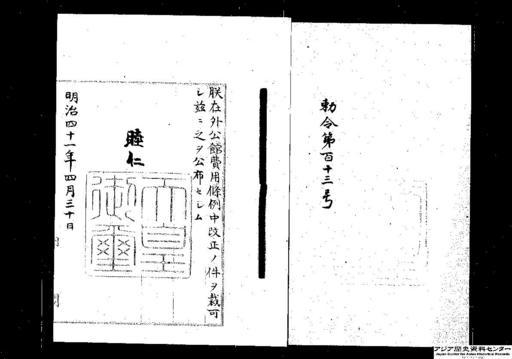 勅令第百十三号
朕在外公館費用條例中改正ノ件ヲ裁可
シ茲ニ之ヲ公布セシム
睦仁
天皇御璽
明治四十一年四月三十日
アジア歴史資料センター
Japan Center for Asian Historical Records